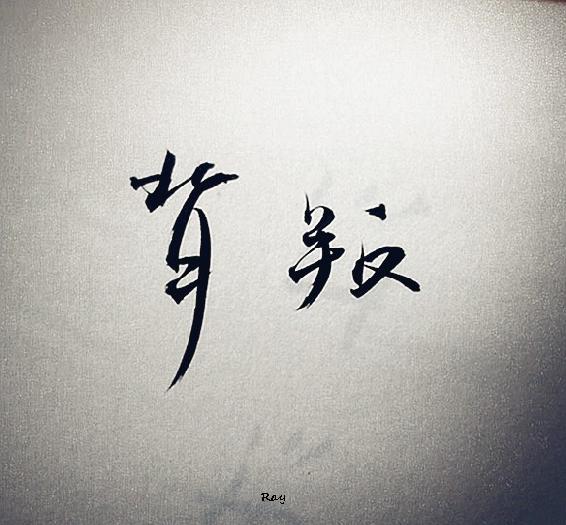 背叛
Ray